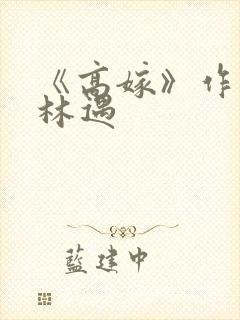 《高嫁》作
林遇
藍建中